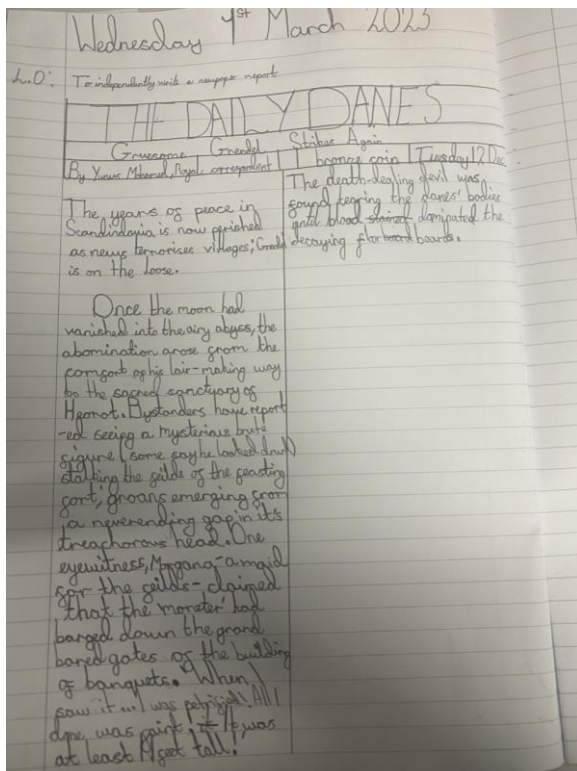 Wednesday 1st March 2023
L.O: To independently write a newspaper report
THE DAILY DANES
Gruesome Grendel Strikes Again
By Yunus Mohamed, Royal correspondent | 1 bronze coin | Tuesday 12 Dec
The years of peace in
Scandinavia is now perished
as news terrorises villages; Grendel
is on the loose.
Once the moon had
vanished into the airy abyss, the
abomination arose from the
comfort of his lair - making way
to the sacred sanctuary of
Heorot. Bystanders have report
-ed seeing a mysterious brute
figure (some say he looked drunk)
stalking the feilds of the feasting
fort, groans emerging from
a neverending gap in it's
treachorous head. One
eyewitness, Morgana - a maid
for the feilds - claimed
that the monster had
barged down the grand
bared gates of the building
of banquets. "When I
saw it... I was petrified! All I
done was faint. It was
at least feet tall!
The death-dealing devil was
found tearing the danes' bodies
until blood stained dominated the
decaying floorboard boards.